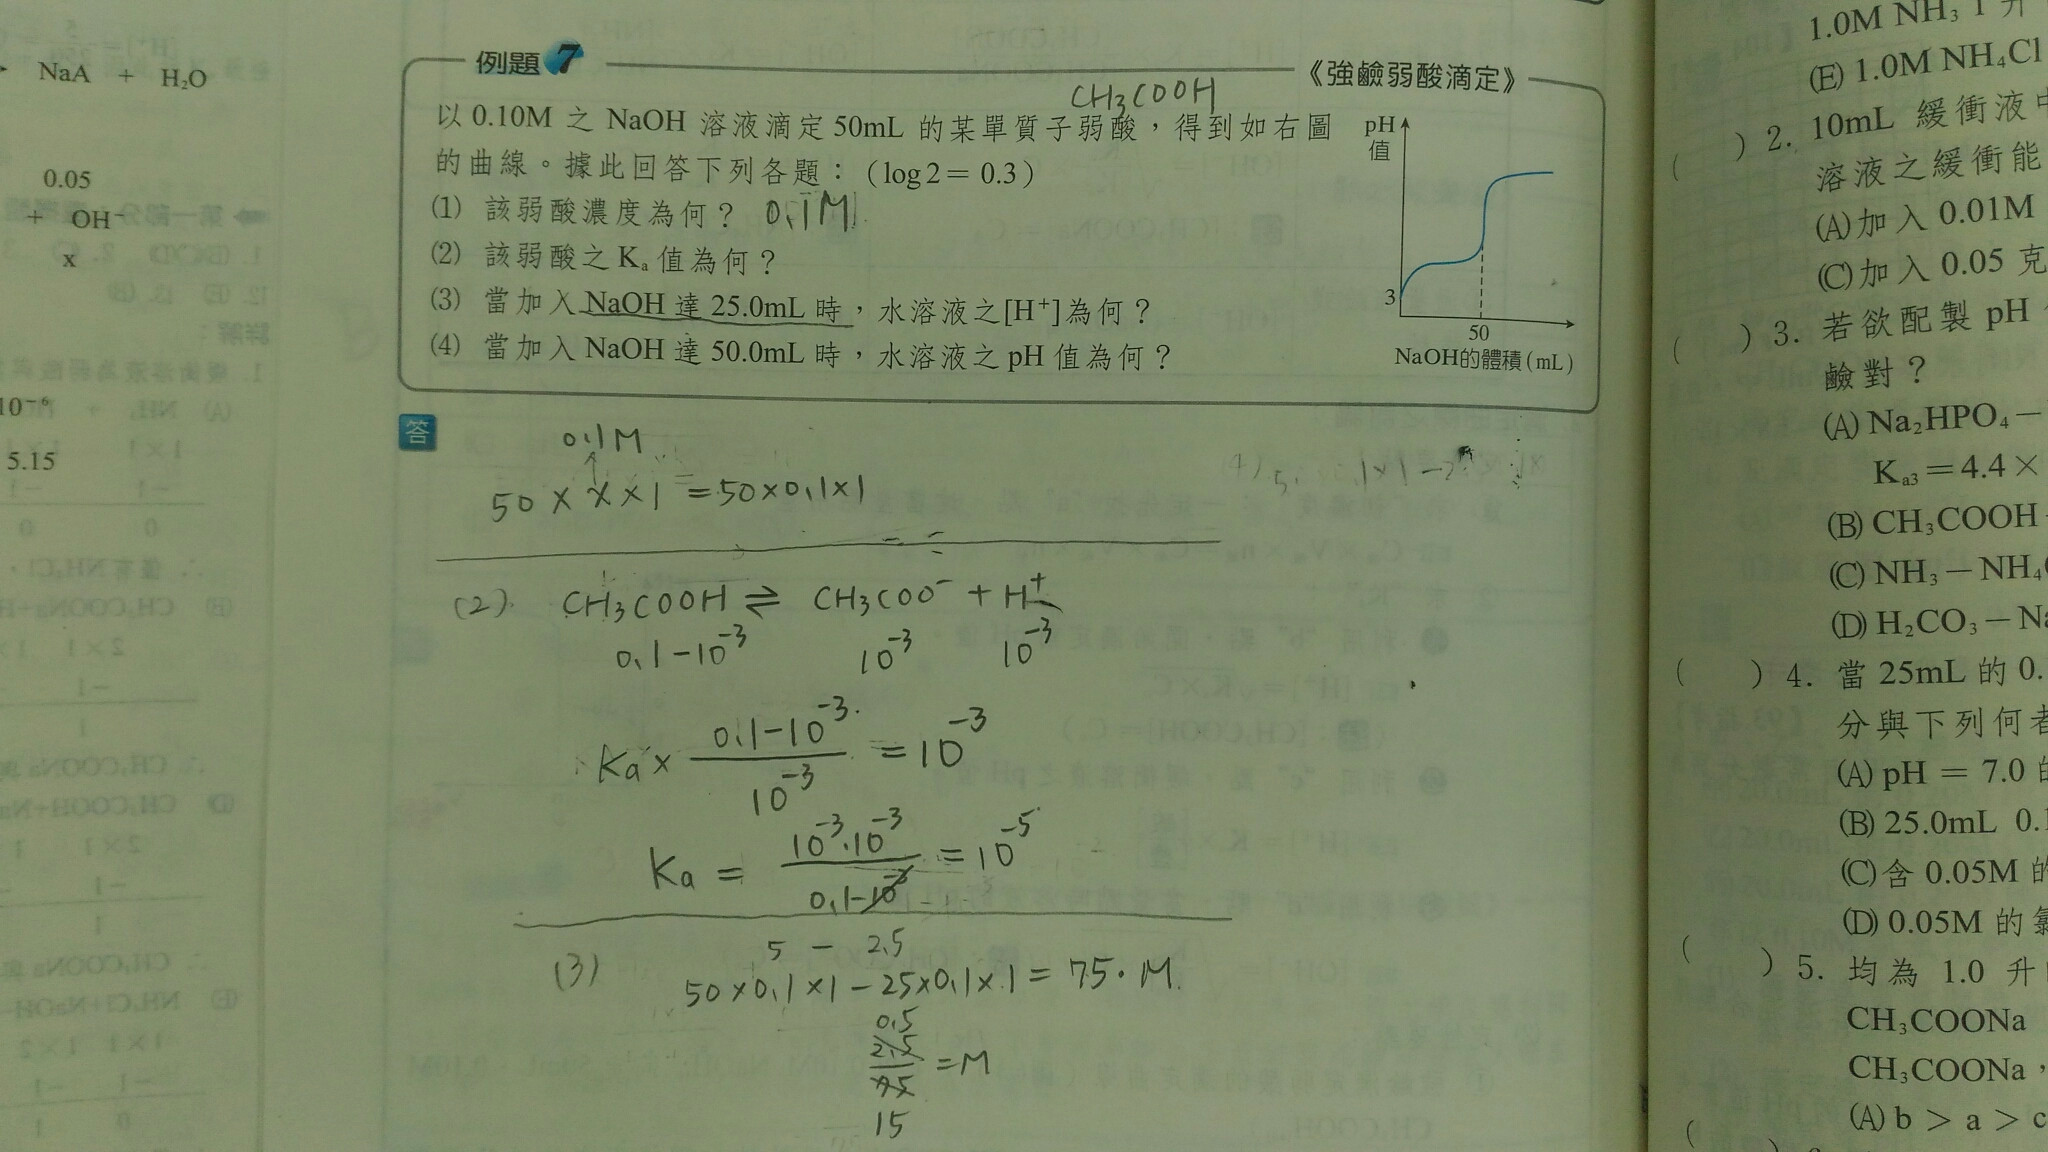 NaA + H₂O
0.05
+ OH⁻
x
10⁻⁶
5.15
例題 7
《強鹼弱酸滴定》
CH₃COOH
以 0.10M 之 NaOH 溶液滴定 50mL 的某單質子弱酸，得到如右圖
的曲線。據此回答下列各題：（log2＝0.3）
⑴ 該弱酸濃度為何？ 0.1M
⑵ 該弱酸之 Kₐ 值為何？
⑶ 當加入 NaOH 達 25.0mL 時，水溶液之[H⁺]為何？
⑷ 當加入 NaOH 達 50.0mL 時，水溶液之 pH 值為何？
pH
值
3
50
NaOH的體積（mL）
答
0.1M
50 × x × 1 = 50×0.1×1
(2). CH₃COOH ⇌ CH₃COO⁻ + H⁺
0.1-10⁻³ 10⁻³ 10⁻³
Ka × (0.1-10⁻³)/10⁻³ = 10⁻³
Ka = (10⁻³·10⁻³)/(0.1-10⁻³) = 10⁻⁵
5 - 2.5
(3) 50×0.1×1 - 25×0.1×1 = 75·M
0.5
2.5/75 = M
15
1.0M NH₃ 1 升
(E) 1.0M NH₄Cl
( ) 2. 10mL 緩衝液中
溶液之緩衝能
(A)加入 0.01M
(C)加入 0.05 克
( ) 3. 若欲配製 pH
鹼對？
(A) Na₂HPO₄－
Kₐ₃＝4.4×
(B) CH₃COOH
(C) NH₃－NH₄
(D) H₂CO₃－Na
( ) 4. 當 25mL 的 0.
分與下列何者
(A) pH = 7.0 的
(B) 25.0mL 0.1
(C)含 0.05M 的
(D) 0.05M 的氯
( ) 5. 均為 1.0 升
CH₃COONa
CH₃COONa，
(A) b > a > c